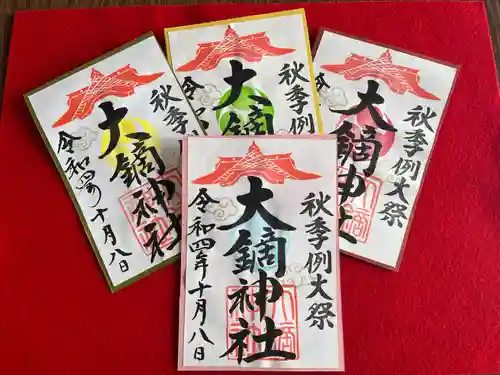 秋季
大鏑神社
令和四年十月八日
秋季例
大鏑
令
秋季例大祭
大鏑神社
秋季例大祭
大鏑神社
令和四年十月八日